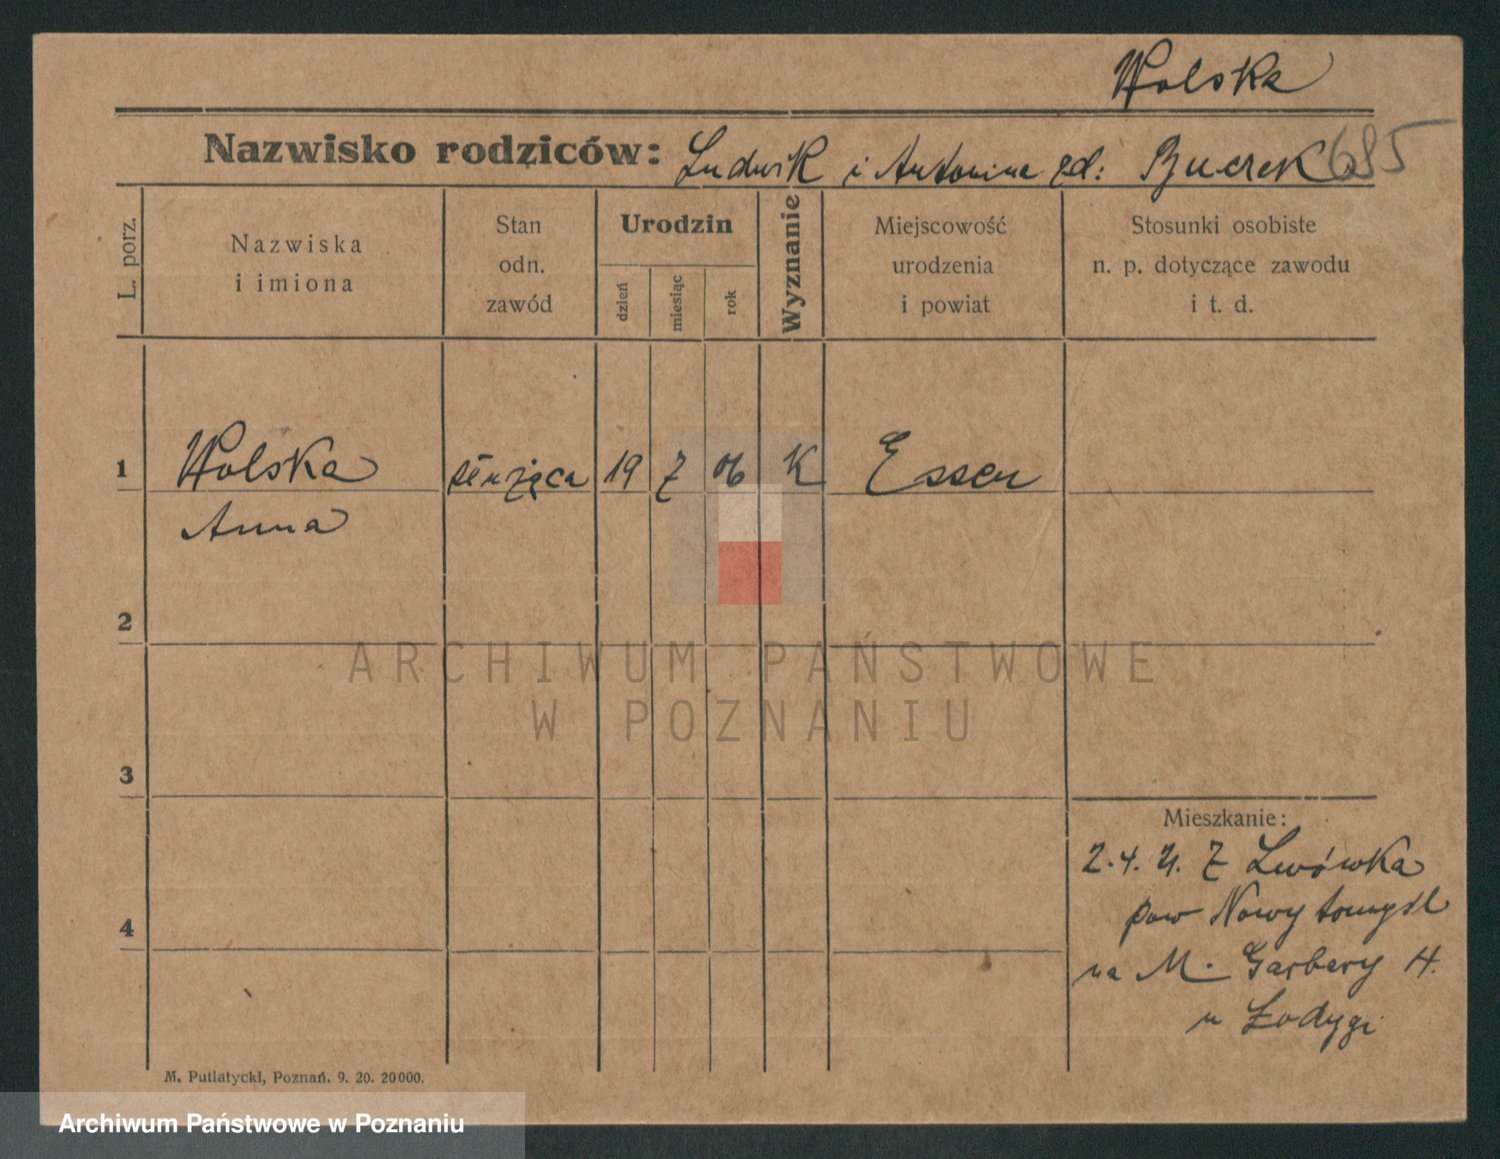 Wolska
Nazwisko rodziców: Ludwik i Antonina zd: Buczek 685
L. porz.
Nazwiska
i imiona
Stan
odn.
zawód
Urodzin
dzień
miesiąc
rok
Wyznanie
Miejscowość
urodzenia
i powiat
Stosunki osobiste
n. p. dotyczące zawodu
i t. d.
1 Wolska służąca 19 7 06 K Essen
Anna
2
ARCHIWUM PAŃSTWOWE
W POZNANIU
3
Mieszkanie:
2.4.21. Z Lwówka
pow Nowytomyśl
na M. Garbary 4.
u Łodygi
4
M. Putiatycki, Poznań. 9. 20. 20000.
Archiwum Państwowe w Poznaniu